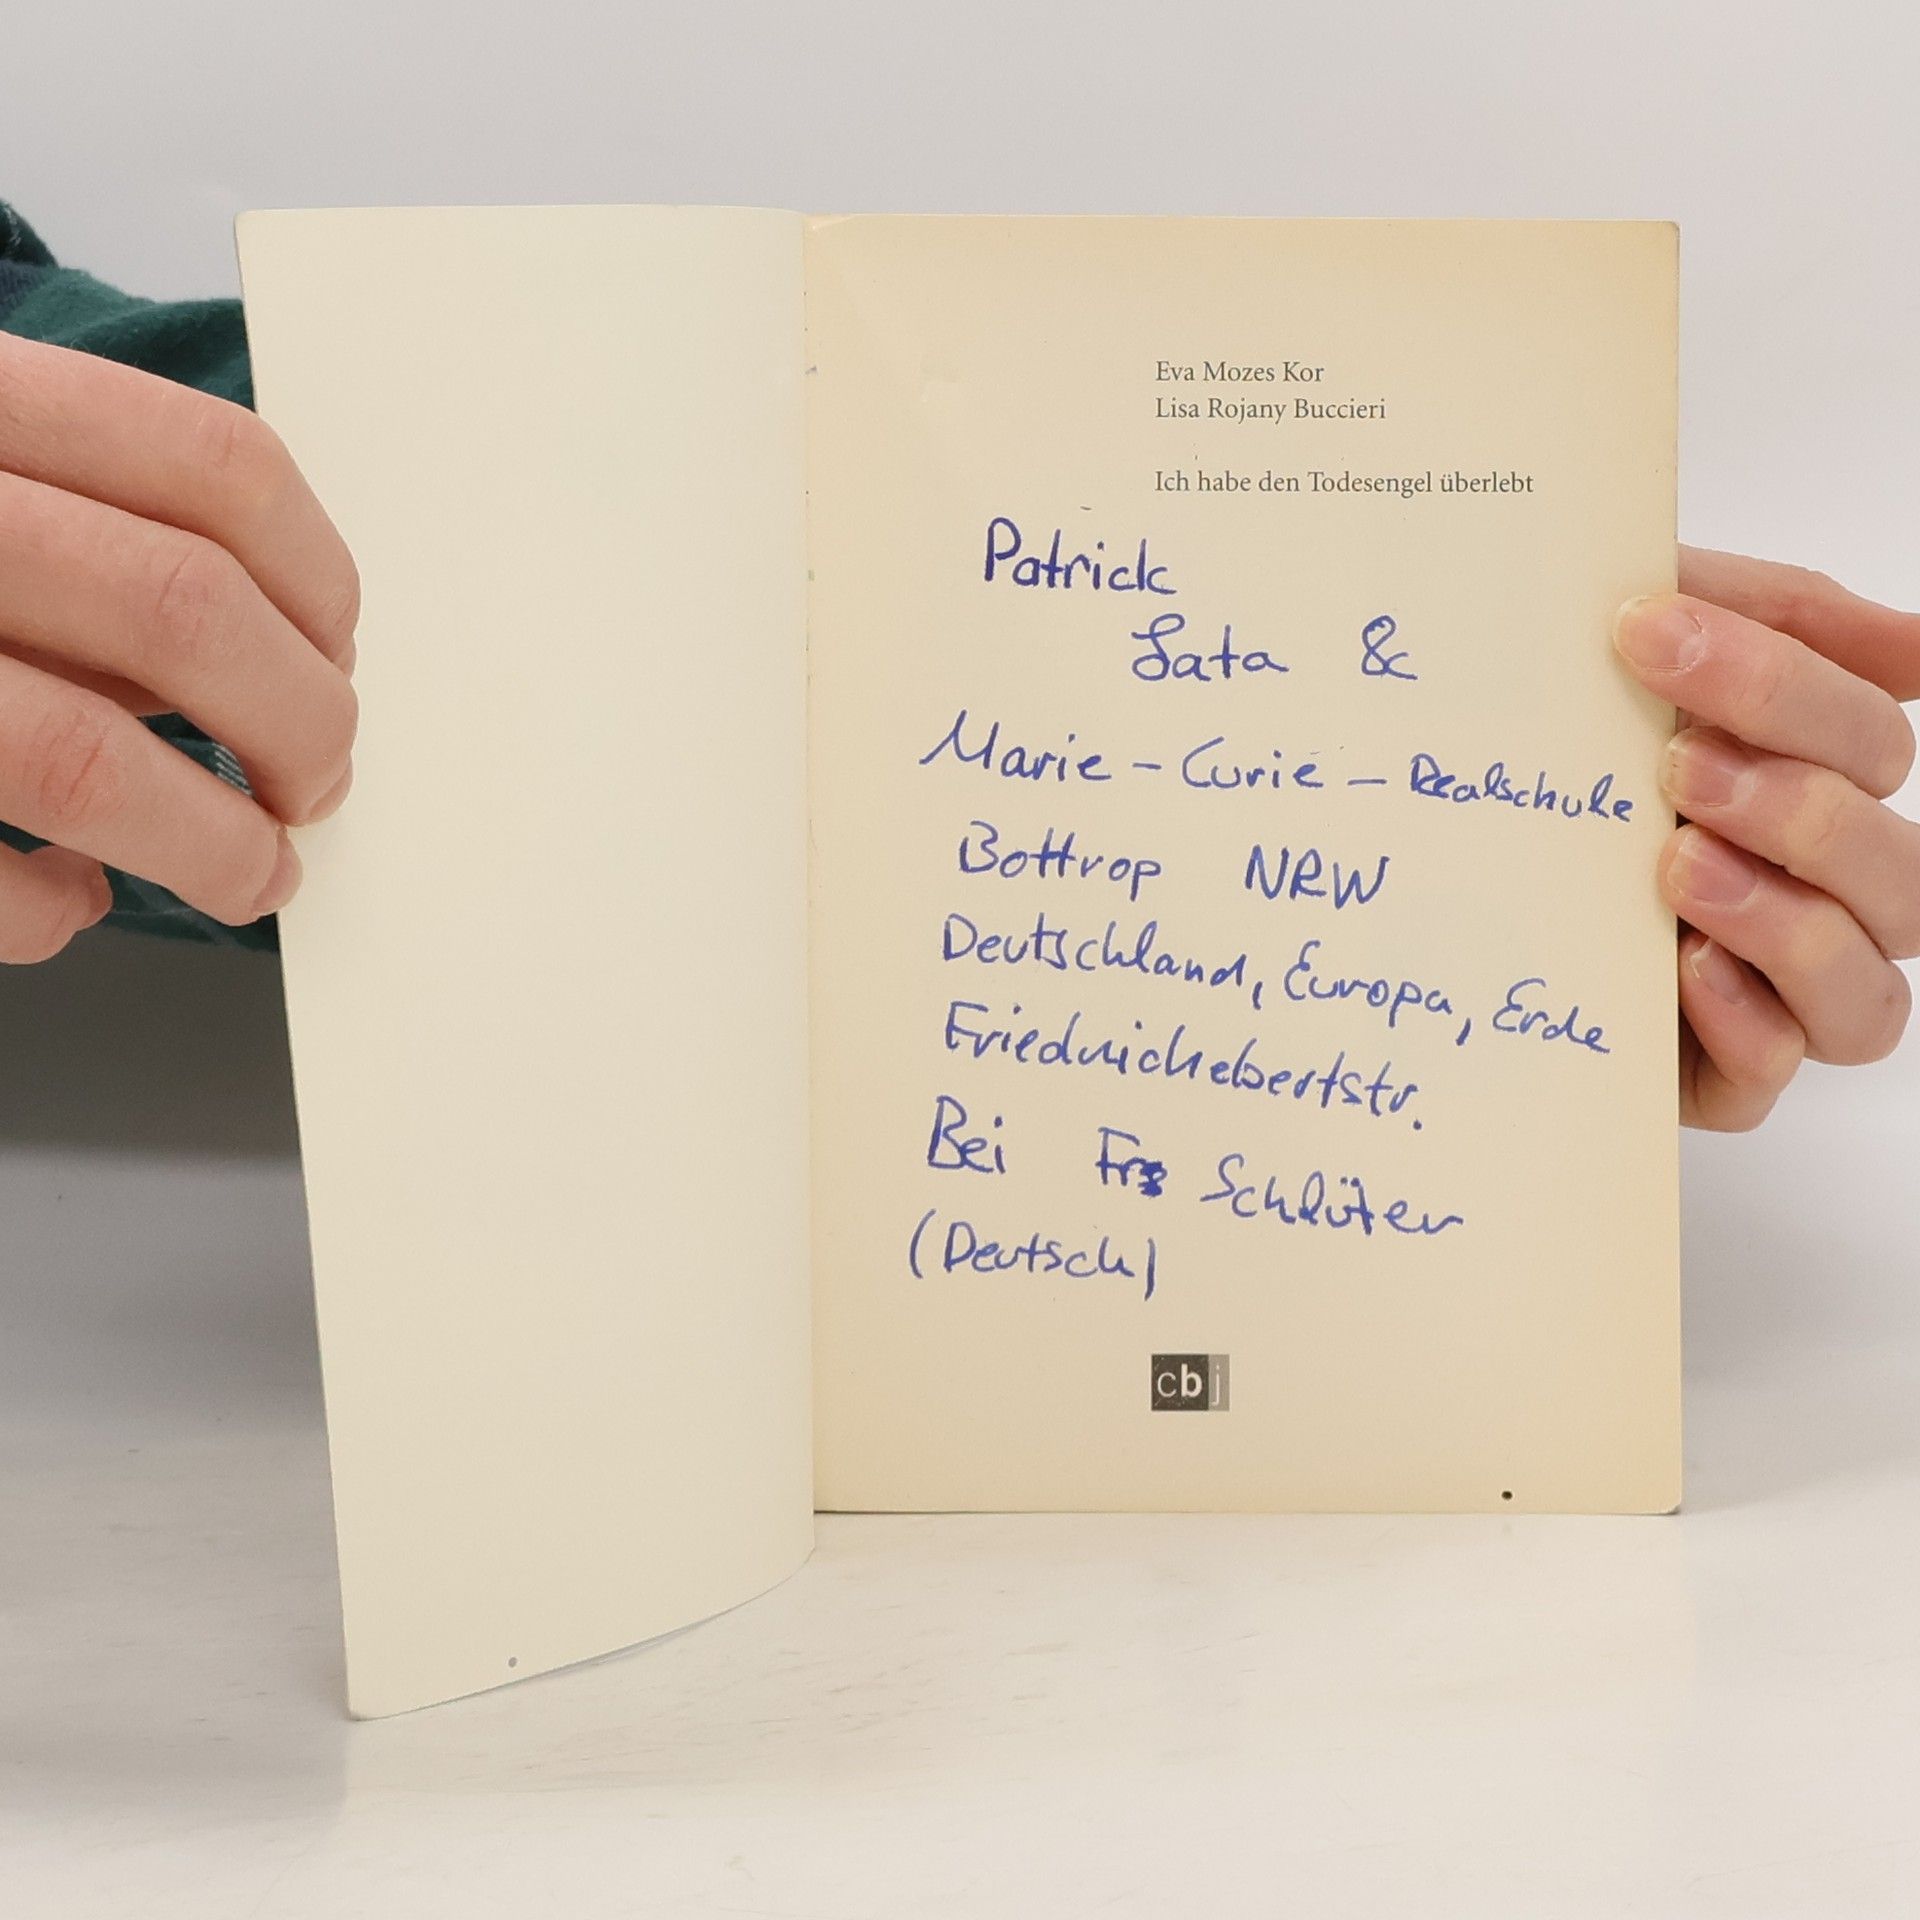 Eva Mozes Kor
Lisa Rojany Buccieri
Ich habe den Todesengel überlebt
Patrick
Sata &
Marie - Curie - Realschule
Bottrop NRW
Deutschland, Europa, Erde
Friedrichebertstr.
Bei Fr Schlüter
(Deutsch)
cbj